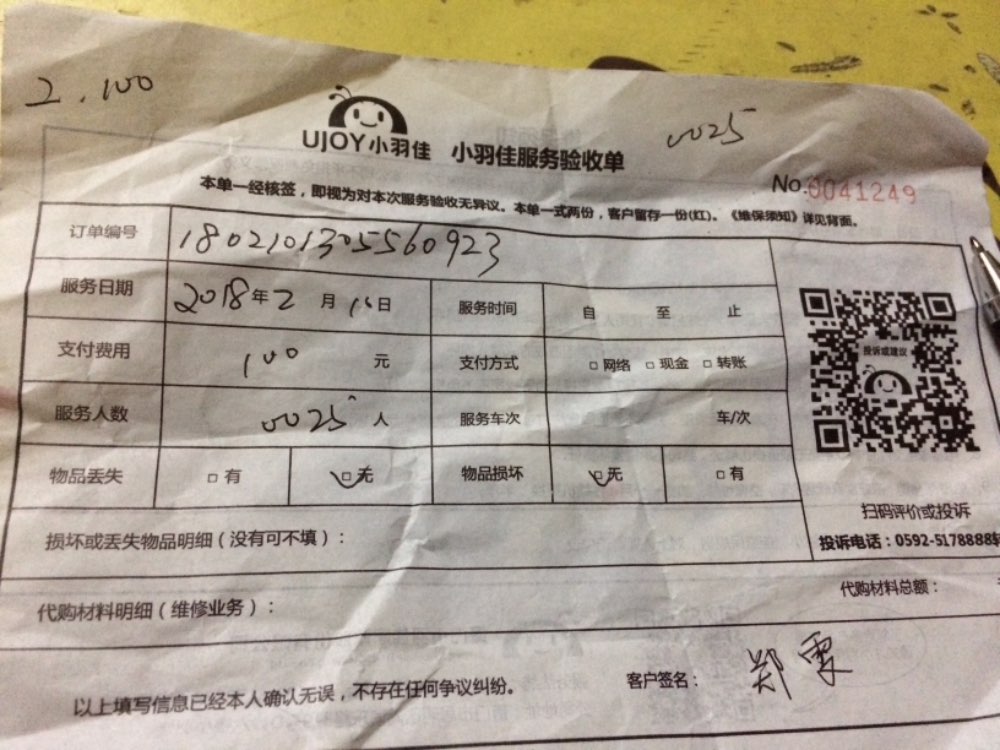 2.100
0025
UJOY小羽佳 小羽佳服务验收单
No.0041249
本单一经核签，即视为对本次服务验收无异议。本单一式两份，客户留存一份(红)。《维保须知》详见背面。
订单编号 1802101305560923
服务日期 2018年2月 日 服务时间 自 至 止
支付费用 100 元 支付方式 □网络 □现金 □转账
服务人数 0025 人 服务车次 车/次
物品丢失 □有 □无 物品损坏 □无 □有
投诉或建议
扫码评价或投诉
投诉电话：0592-5178888转
损坏或丢失物品明细（没有可不填）：
代购材料明细（维修业务）： 代购材料总额：
以上填写信息已经本人确认无误，不存在任何争议纠纷。 客户签名：郑雯